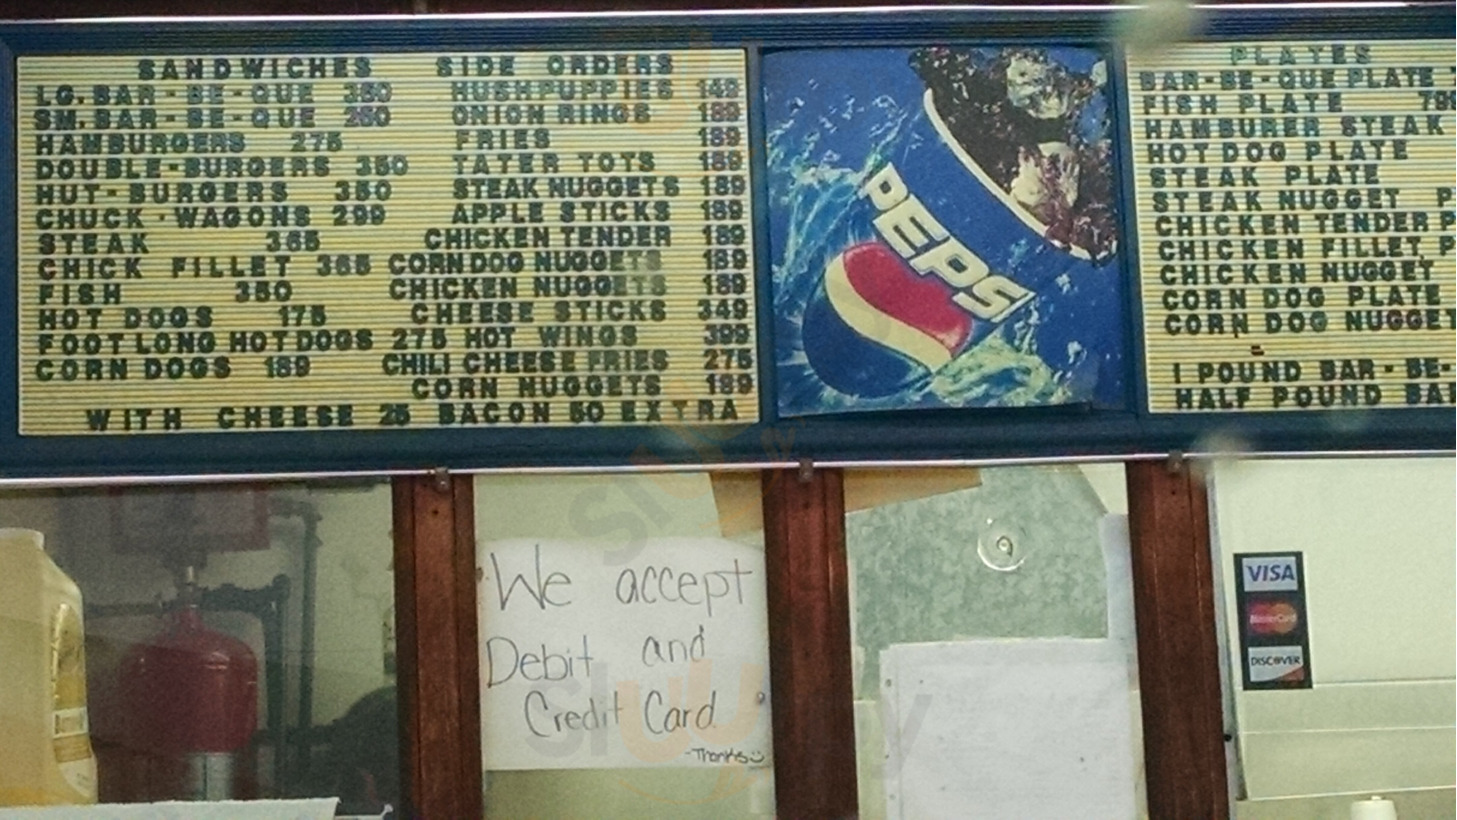 SANDWICHES
LG. BAR-BE-QUE 350
SM. BAR-BE-QUE 250
HAMBURGERS 275
DOUBLE-BURGERS 350
HUT-BURGERS 350
CHUCK-WAGONS 299
STEAK 365
CHICK FILLET 365
FISH 350
HOT DOGS 175
FOOTLONG HOTDOGS 275
CORN DOGS 189
SIDE ORDERS
HUSHPUPPIES 149
ONION RINGS 189
FRIES 189
TATER TOTS 189
STEAK NUGGETS 189
APPLE STICKS 189
CHICKEN TENDER 189
CORNDOG NUGGETS 189
CHICKEN NUGGETS 189
CHEESE STICKS 349
HOT WINGS 399
CHILI CHEESE FRIES 275
CORN NUGGETS 189
WITH CHEESE 25 BACON 50 EXTRA
PEPSI
PLATES
BAR-BE-QUE PLATE
FISH PLATE 799
HAMBURER STEAK
HOT DOG PLATE
STEAK PLATE
STEAK NUGGET P
CHICKEN TENDER P
CHICKEN FILLET P
CHICKEN NUGGET
CORN DOG PLATE
CORN DOG NUGGET
1 POUND BAR-BE-
HALF POUND BAR
We accept
Debit and
Credit Card
-Thanks
VISA
MasterCard
DISCOVER